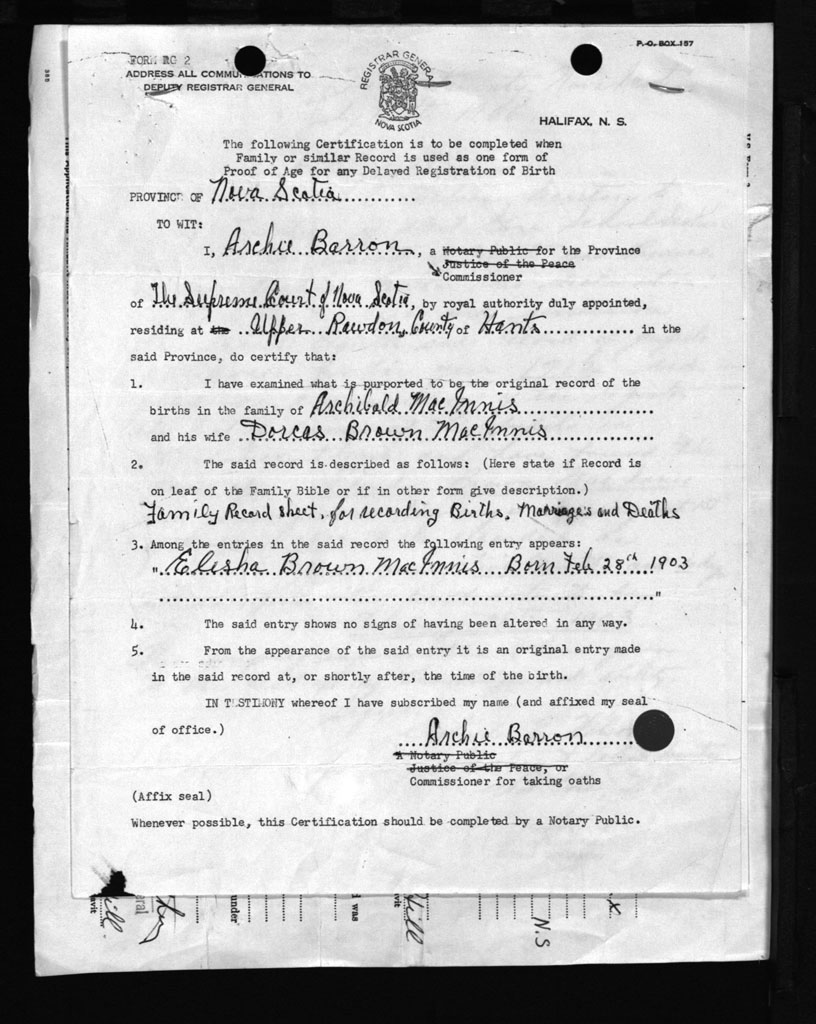 P. O. BOX 157
FORM RG 2
ADDRESS ALL COMMUNICATIONS TO
DEPUTY REGISTRAR GENERAL
REGISTRAR GENERAL
NOVA SCOTIA
HALIFAX, N. S.
The following Certification is to be completed when
Family or similar Record is used as one form of
Proof of Age for any Delayed Registration of Birth
PROVINCE OF Nova Scotia
TO WIT:
I, Archie Barron, a Notary Public for the Province
Justice of the Peace
Commissioner
of The Supreme Court of Nova Scotia, by royal authority duly appointed,
residing at the Upper Rawdon, County of Hants in the
said Province, do certify that:
1. I have examined what is purported to be the original record of the
births in the family of Archibald MacInnis
and his wife Dorcas Brown MacInnis
2. The said record is described as follows: (Here state if Record is
on leaf of the Family Bible or if in other form give description.)
Family Record sheet, for recording Births, Marriages and Deaths
3. Among the entries in the said record the following entry appears:
" Elisha Brown MacInnis Born Feb 28th 1903
"
4. The said entry shows no signs of having been altered in any way.
5. From the appearance of the said entry it is an original entry made
in the said record at, or shortly after, the time of the birth.
IN TESTIMONY whereof I have subscribed my name (and affixed my seal
of office.)
Archie Barron
A Notary Public
Justice of the Peace, or
Commissioner for taking oaths
(Affix seal)
Whenever possible, this Certification should be completed by a Notary Public.
under
I was
Hill
N.S